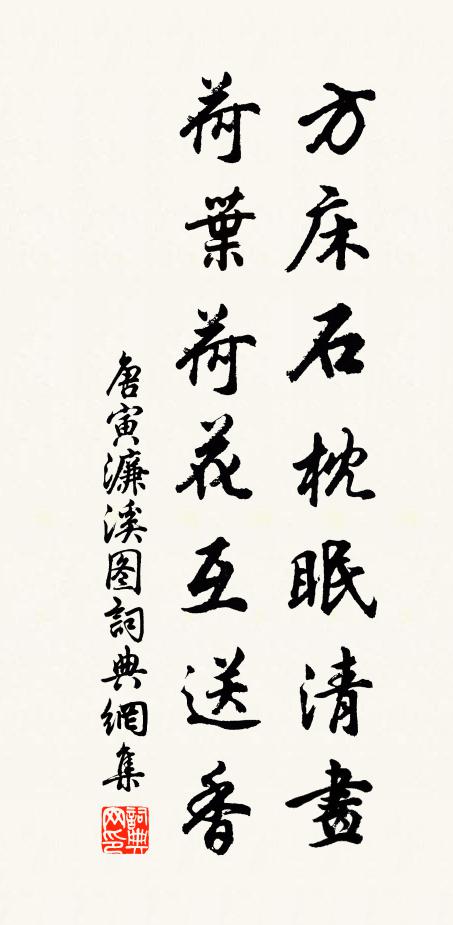 方床石枕眠清晝
荷葉荷花互送香
唐寅濂溪圖詞典網集
詞典网印